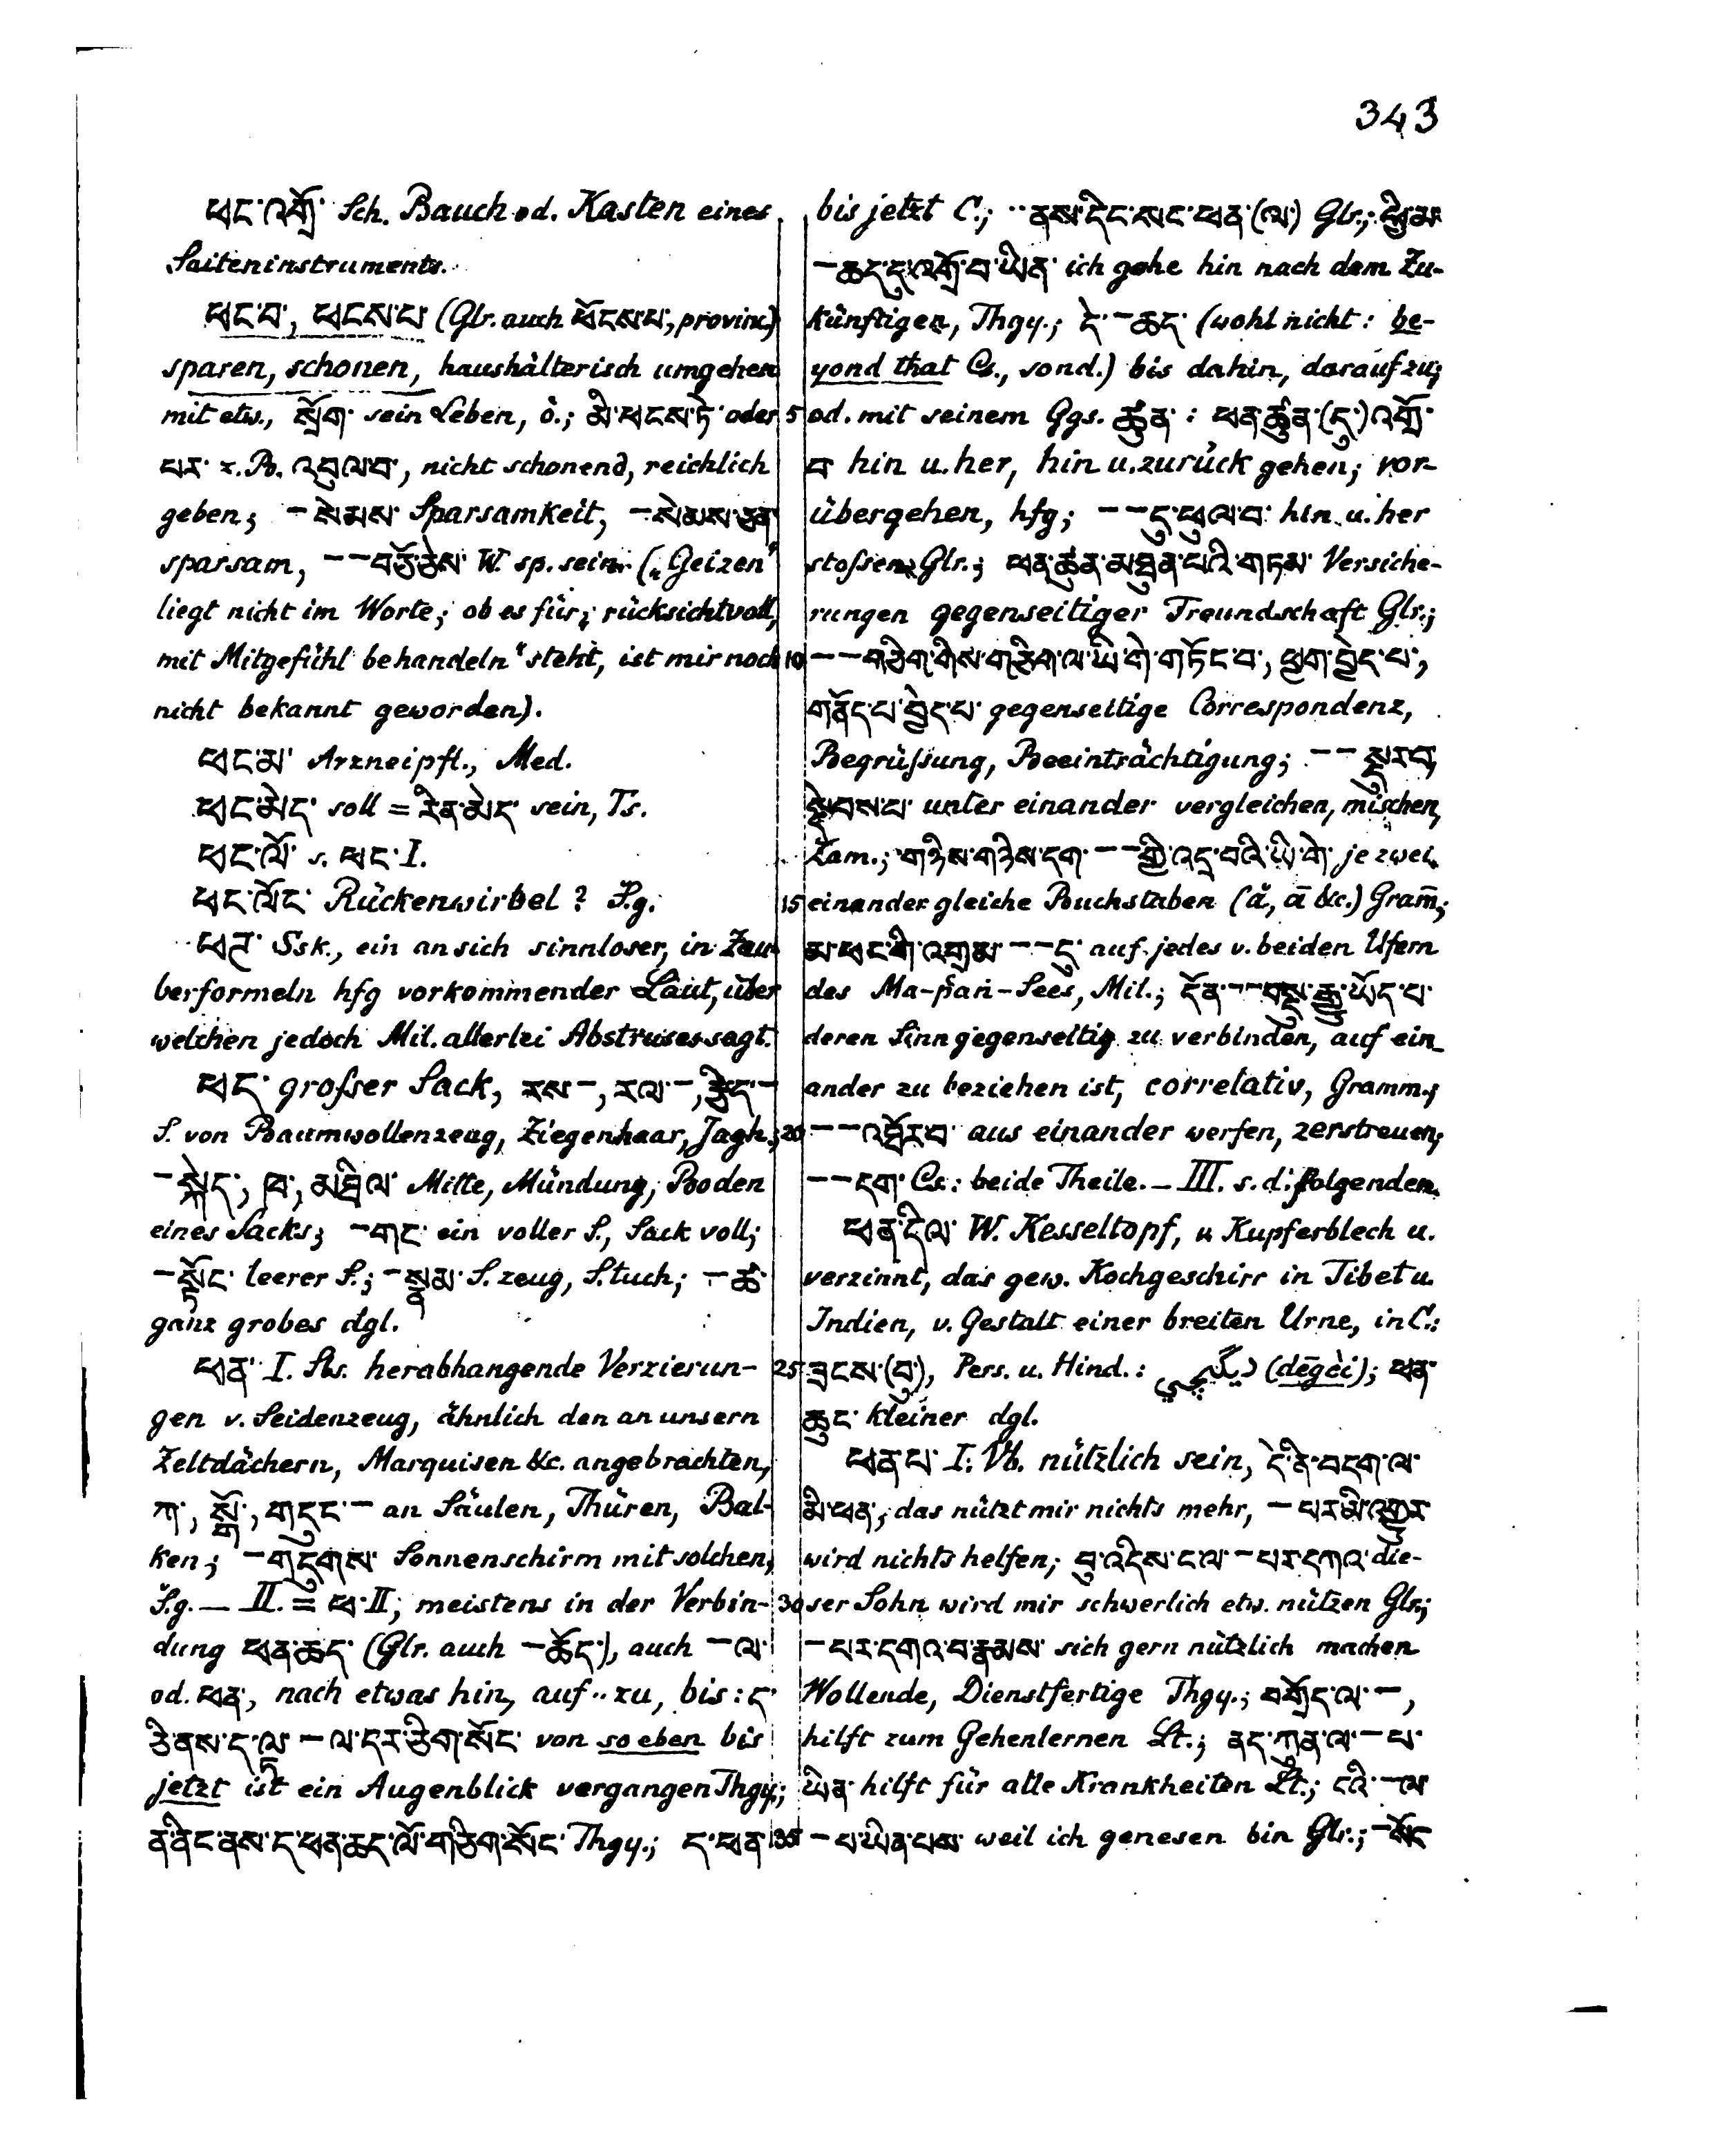 343
ཕང་འགྲོ་ Sch. Bauch od. Kasten eines
Saiteninstruments.
ཕང་བ་, ཕངས་པ་ (Glr. auch ཕོངས་པ་, provinc.)
sparen, schonen, haushälterisch umgehen
mit etw., སྲོག་ sein Leben, ö.; མི་ཕངས་ཏེ་ oder
པར་ z. B. འབུལ་བ་, nicht schonend, reichlich
geben; –སེམས་ Sparsamkeit, –སེམས་ཅན་
sparsam, – –བཅོ་ཅེས་ W. sp. sein („Geizen“
liegt nicht im Worte; ob es für „rücksichtvoll,
mit Mitgefühl behandeln“ steht, ist mir noch
nicht bekannt geworden).
ཕང་མ་ Arzneipfl., Med.
ཕང་མེད་ soll = རིན་མེད་ sein, Ts.
ཕང་ལོ་ s. ཕང་ I.
ཕང་ལོང་ Rückenwirbel? S̆.g.
ཕཊ་ Ssk., ein an sich sinnloser, in Zau-
berformeln hfg vorkommender Laut, über
welchen jedoch Mil. allerlei Abstruses sagt.
ཕད་ großer Sack, རས་–, རལ་–, ཕྱིད་–
S. von Baumwollenzeug, Ziegenhaar, Jagh.;
–སྐེད་, ཁ་, མཐིལ་ Mitte, Mündung, Boden
eines Sacks; –གང་ ein voller S., Sack voll;
–སྟོང་ leerer S.; –སྣམ་ S. zeug, S. tuch; –ཚ་
ganz grobes dgl.
ཕན་ I. Sbs. herabhangende Verzierun-
gen v. Seidenzeug, ähnlich den an unsern
Zeltdächern, Marquisen &c. angebrachten,
ཀ་, སྒོ་, གདུང་– an Säulen, Thüren, Bal-
ken; –གདུགས་ Sonnenschirm mit solchen,
S̆.g. — II. = ཕ་ II; meistens in der Verbin-
dung ཕན་ཆད་ (Glr. auch –ཆོད་), auch –ལ་
od. ཕན་, nach etwas hin, auf ·· zu, bis: ད་
ཅི་ནས་ད་ལྟ་–ལ་དར་ཅིག་སོང་ von so eben bis
jetzt ist ein Augenblick vergangen Thgy.;
ན་ནིང་ནས་ད་ཕན་ཆད་ལོ་གཅིག་སོང་ Thgy.; ད་ཕན་
bis jetzt C.; ··ནས་དེང་སང་ཕན་(ལ་) Glr.; ཕྱི་མ་
–ཆད་དུ་འགྲོ་བ་ཡིན་ ich gehe hin nach dem Zu-
künftigen, Thgy.; དེ་–ཆད་ (wohl nicht: be-
yond that Cs., sond.) bis dahin, darauf zu;
5 od. mit seinem Ggs. ཚུན་: ཕན་ཚུན་(དུ་)འགྲོ་
བ་ hin u. her, hin u. zurück gehen; vor-
übergehen, hfg; – –དུ་ཕུལ་བ་ hin u. her
stoßen Glr.; ཕན་ཚུན་མཐུན་པའི་གཏམ་ Versiche-
rungen gegenseitiger Freundschaft Glr.;
10 – –གཅིག་གིས་གཅིག་ལ་ཡི་གེ་གཏོང་བ་, ཕྱག་བྱེད་པ་,
གནོད་པ་བྱེད་པ་ gegenseitige Correspondenz,
Begrüßung, Beeinträchtigung; – –སྡུར་བ་,
སྡེབས་པ་ unter einander vergleichen, mischen,
Zam.; གཉིས་གཉིས་དག་– –གྱི་འདྲ་བའི་ཡི་གེ་ je zwei
15 einander gleiche Buchstaben (ă, ā &c.) Gram̄;
མ་ཕང་གི་འགྲམ་– –དུ་ auf jedes v. beiden Ufern
des Ma-pʽaṅ-Sees, Mil.; དོན་– –བསྡུ་རྒྱུ་ཡོད་པ་
deren Sinn gegenseitig zu verbinden, auf ein-
ander zu beziehen ist, correlativ, Gramm.;
20 – –འཐོར་བ་ aus einander werfen, zerstreuen;
– –དག་ Cs.: beide Theile. — III. s. d. folgenden.
ཕན་དིལ་ W. Kesseltopf, v. Kupferblech u.
verzinnt, das gew. Kochgeschirr in Tibet u.
Indien, v. Gestalt einer breiten Urne, in C.:
25 ཟངས་(བུ་), Pers. u. Hind.: دیگچی (dēgčī); ཕན་
ཆུང་ kleiner dgl.
ཕན་པ་ I. Vb. nützlich sein, དེ་ནི་བདག་ལ་
མི་ཕན་, das nützt mir nichts mehr, –པར་མི་འགྱུར་
wird nichts helfen; བུ་འདིས་ང་ལ་–པར་དཀའ་ die-
30 ser Sohn wird mir schwerlich etw. nützen Glr.;
–པར་དགའ་བ་རྣམས་ sich gern nützlich machen
Wollende, Dienstfertige Thgy.; བགྲོད་ལ་–,
hilft zum Gehenlernen Lt.; ནད་ཀུན་ལ་–པ་
ཡིན་ hilft für alle Krankheiten Lt.; ངའི་–ལ་
35 –པ་ཡིན་པས་ weil ich genesen bin Glr.; –སོང་